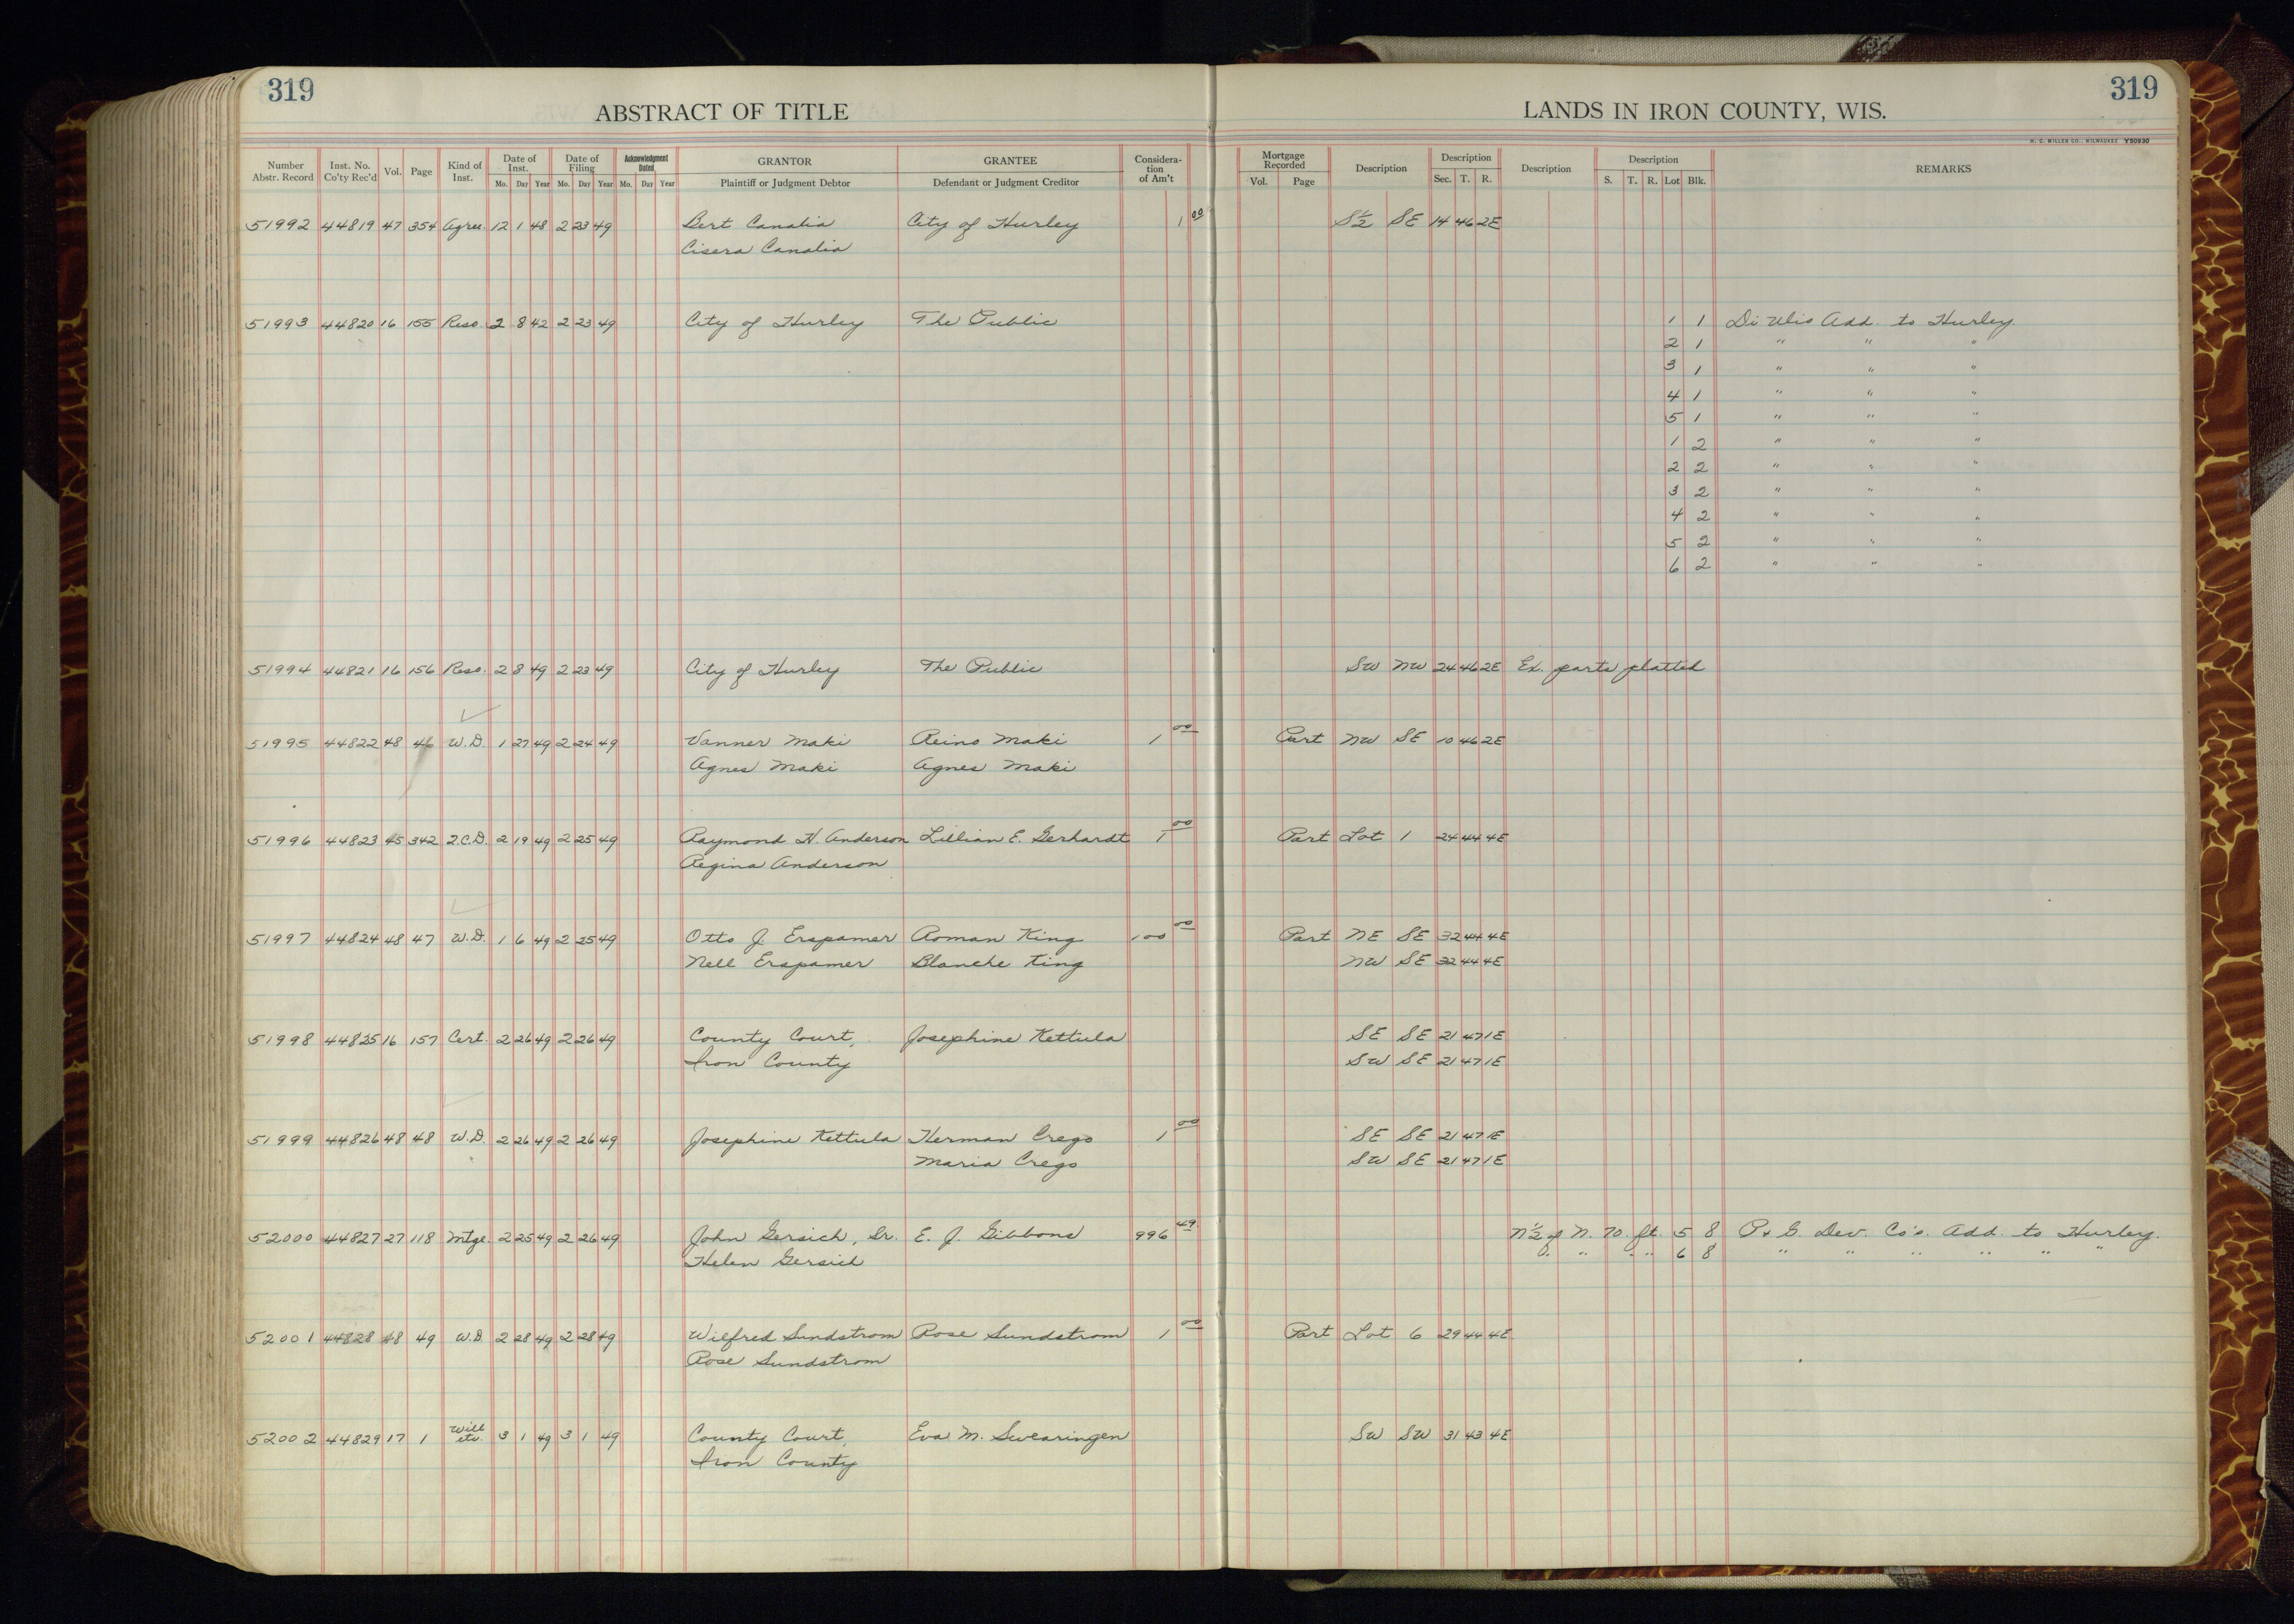 319
319
ABSTRACT OF TITLE
LANDS IN IRON COUNTY, WIS.
H. C. MILLER CO., MILWAUKEE Y50930
Number Abstr. Record Inst. No. Co'ty Rec'd Vol. Page Kind of Inst. Date of Inst. Mo. Day Year Date of Filing Mo. Day Year Acknowledgment Dated Mo. Day Year GRANTOR Plaintiff or Judgment Debtor GRANTEE Defendant or Judgment Creditor Considera-tion of Am't Mortgage Recorded Vol. Page Description Description Sec. T. R. Description Description S. T. R. Lot Blk. REMARKS
51992 44819 47 354 Agree. 12 1 48 2 23 49 Bert Canalia City of Hurley 1 00 S½ SE 14 46 2E
Cisera Canalia
51993 44820 16 155 Reso. 2 8 42 2 23 49 City of Hurley The Public 1 1 Di Ulio Add. to Hurley
2 1 " " "
3 1 " " "
4 1 " " "
5 1 " " "
1 2 " " "
2 2 " " "
3 2 " " "
4 2 " " "
5 2 " " "
6 2 " " "
51994 44821 16 156 Reso. 2 8 49 2 23 49 City of Hurley The Public SW NW 24 46 2E Ex. parts platted
51995 44822 48 46 W.D. 1 27 49 2 24 49 Vanner Maki Reino Maki 1 00 Part NW SE 10 46 2E
Agnes Maki Agnes Maki
51996 44823 45 342 Q.C.D. 2 19 49 2 25 49 Raymond H. Anderson Lillian E. Gerhardt 1 00 Part Lot 1 24 44 4E
Regina Anderson
51997 44824 48 47 W.D. 1 6 49 2 25 49 Otto J. Erspamer Roman King 100 00 Part NE SE 32 44 4E
Nell Erspamer Blanche King NW SE 32 44 4E
51998 44825 16 157 Cert. 2 26 49 2 26 49 County Court, Josephine Kettula SE SE 21 47 1E
Iron County SW SE 21 47 1E
51999 44826 48 48 W.D. 2 26 49 2 26 49 Josephine Kettula Herman Crego 1 00 SE SE 21 47 1E
Maria Crego SW SE 21 47 1E
52000 44827 27 118 Mtge. 2 25 49 2 26 49 John Gersich, Sr. E. J. Gibbons 996 49 N½ of N. 70 ft. 5 8 P. & G. Dev. Co's. Add. to Hurley.
Helen Gersich " " " " 6 8 " " " " " "
52001 44828 48 49 W.D. 2 28 49 2 28 49 Wilfred Sundstrom Rose Sundstrom 1 00 Part Lot 6 29 44 4E
Rose Sundstrom
52002 44829 17 1 Will etc. 3 1 49 3 1 49 County Court, Eva M. Swearingen SW SW 31 43 4E
Iron County